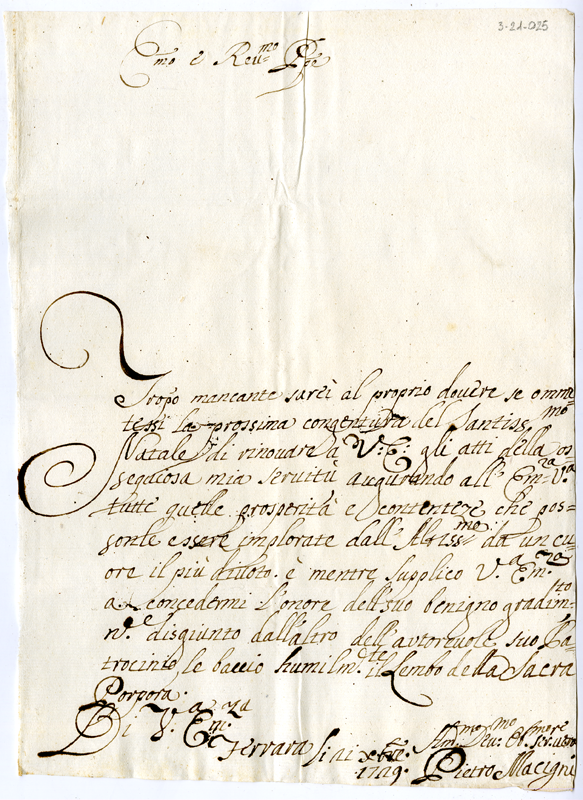 3-21-025
Emo e Reu.mo Pre
Tropo mancante sarei al proprio douere se omme
tessi la prossima congentura del Santiss.mo
Natale di rinouare a V: E: gli atti della os=
sequiosa mia seruitù augurando all' Em.za V.a
tutte quelle prosperità e contenteze che pos=
sonle essere implorate dall' Altiss.mo da un cu=
ore il più diuoto. è mentre supplico V.a Em.za
a concedermi l'onore dell suo benigno gradim.to
n.e disgiunto dall'altro dell'autoreuole suo Pa=
trocinio, le baccio humilm.te il Lembo della Sacra
Porpora.
Di V.a Em.za
Ferrara li 21 Xbre.
1729.
Um.mo Deu.mo Ob. seruitore
Pietro Macigni